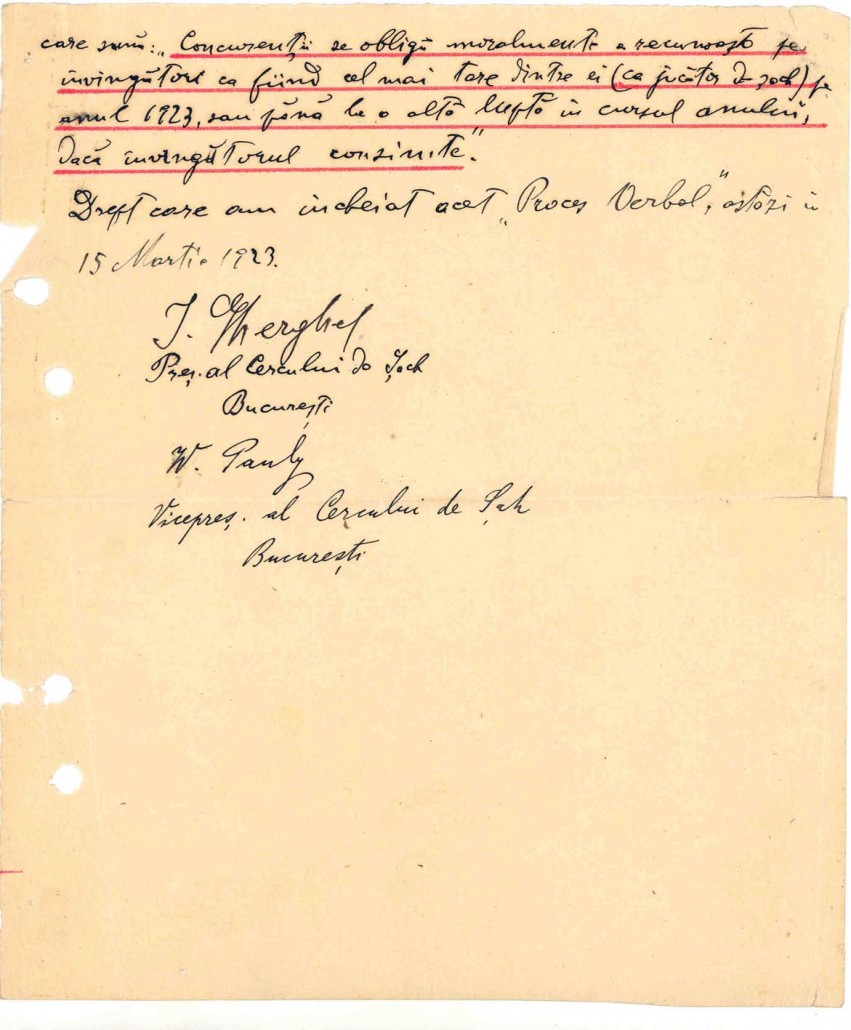 care sună: „Concurenții se obligă moralmente a recunoaște pe
învingători ca fiind cel mai tare dintre ei (ca jucător de șach) pe
anul 1923, sau până la o altă luptă în cursul anului,
dacă învingătorul consimte."
Drept care am încheiat acet „Proces Verbal", astăzi în
15 Martie 1923.
I. Gherghel
Preș. al Cercului de Șach
București
W. Pauly
Vicepreș. al Cercului de Șah
București